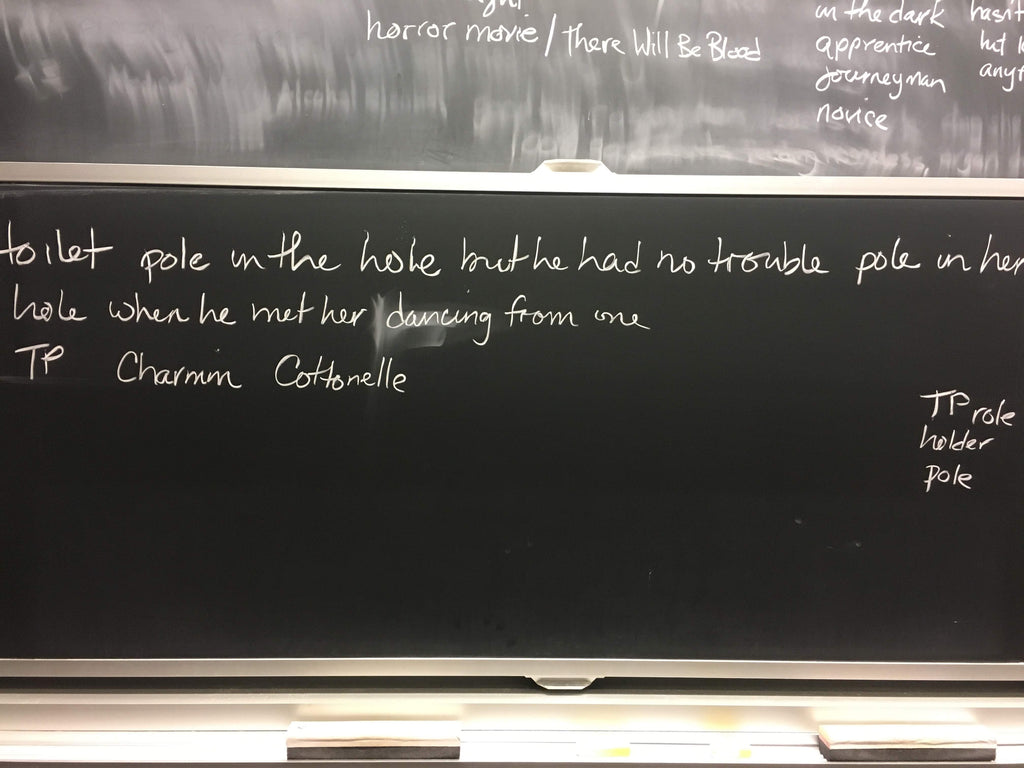 horror movie / There Will Be Blood
in the dark
apprentice
journeyman
novice
hasn't
but
toilet pole in the hole but he had no trouble pole in her
hole when he met her dancing from one
TP Charmin Cottonelle
TP role
holder
pole